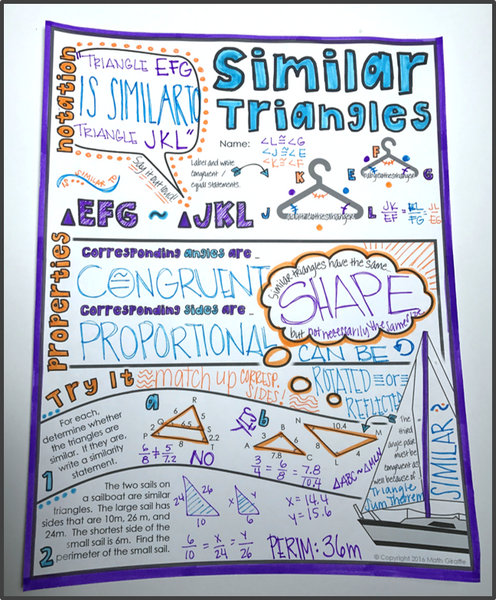 Similar
Triangles
notation
"TRIANGLE EFG
IS SIMILAR TO
TRIANGLE JKL"
Say it out loud!
IS SIMILAR TO
~
△EFG ~ △JKL
Name:
∠L≅∠G
∠J≅∠E
∠K≅∠F
Label and write
congruent /
equal statements.
F
E
G
K
J
L
JK/EF = KL/FG = JL/EG
properties
Corresponding angles are _
CONGRUENT
≅
Corresponding sides are _
PROPORTIONAL
Similar triangles have the same
SHAPE
but not necessarily the same size
CAN BE
ROTATED or
REFLECTED
Try It
match up corresp.
sides!
1
For each,
determine whether
the triangles are
similar. If they are,
write a similarity
statement.
a
P
Q
R
S
T
6
6.5
5
2
2.8
7.2
6/8 ≠ 5/7.2 NO
b
A
B
C
3
6
7.8
N
M
10.4
4
8
3/4 = 6/8 = 7.8/10.4
The
third
angle pair
must be
congruent as
well because of
Triangle
Sum Theorem
SIMILAR ~
2
The two sails on
a sailboat are similar
triangles. The large sail has
sides that are 10m, 26 m, and
24m. The shortest side of the
small sail is 6m. Find the
perimeter of the small sail.
24
26
10
x
y
6
x = 14.4
y = 15.6
6/10 = x/24 = y/26
PERIM: 36m
© Copyright 2016 Math Giraffe